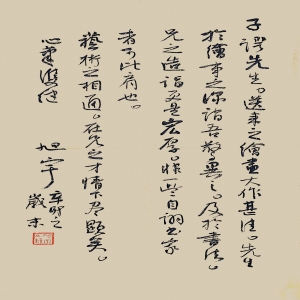 子谔先生。送来之绘画大作甚佳。先生
于绘事之深诣吾敬畏之。及于书法。
兄之造诣更是宏厚。惟一些自诩书家
者可比肩也。
艺术之相通。在兄之才情下尽显矣。
心来
旭宇
辛卯之
岁末